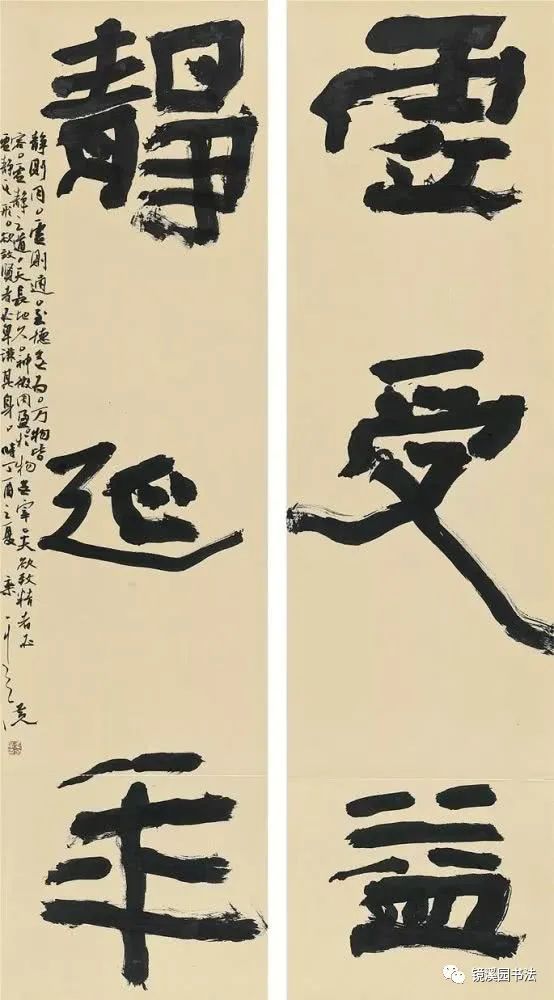 虛受益
靜延年
靜則同。虛則通。至德无为。万物皆
容。虛靜之道。天長地久。神微周盈於物无宰。夫欲致精者必
虛靜其形。欲致賢者必卑謙其身。時丁酉之夏
镜溪园书法